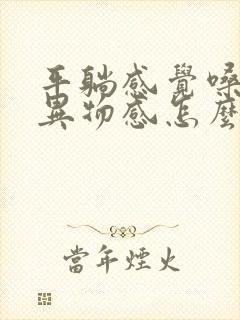 平躺感覺嗓
異物感怎麼
當年煙火